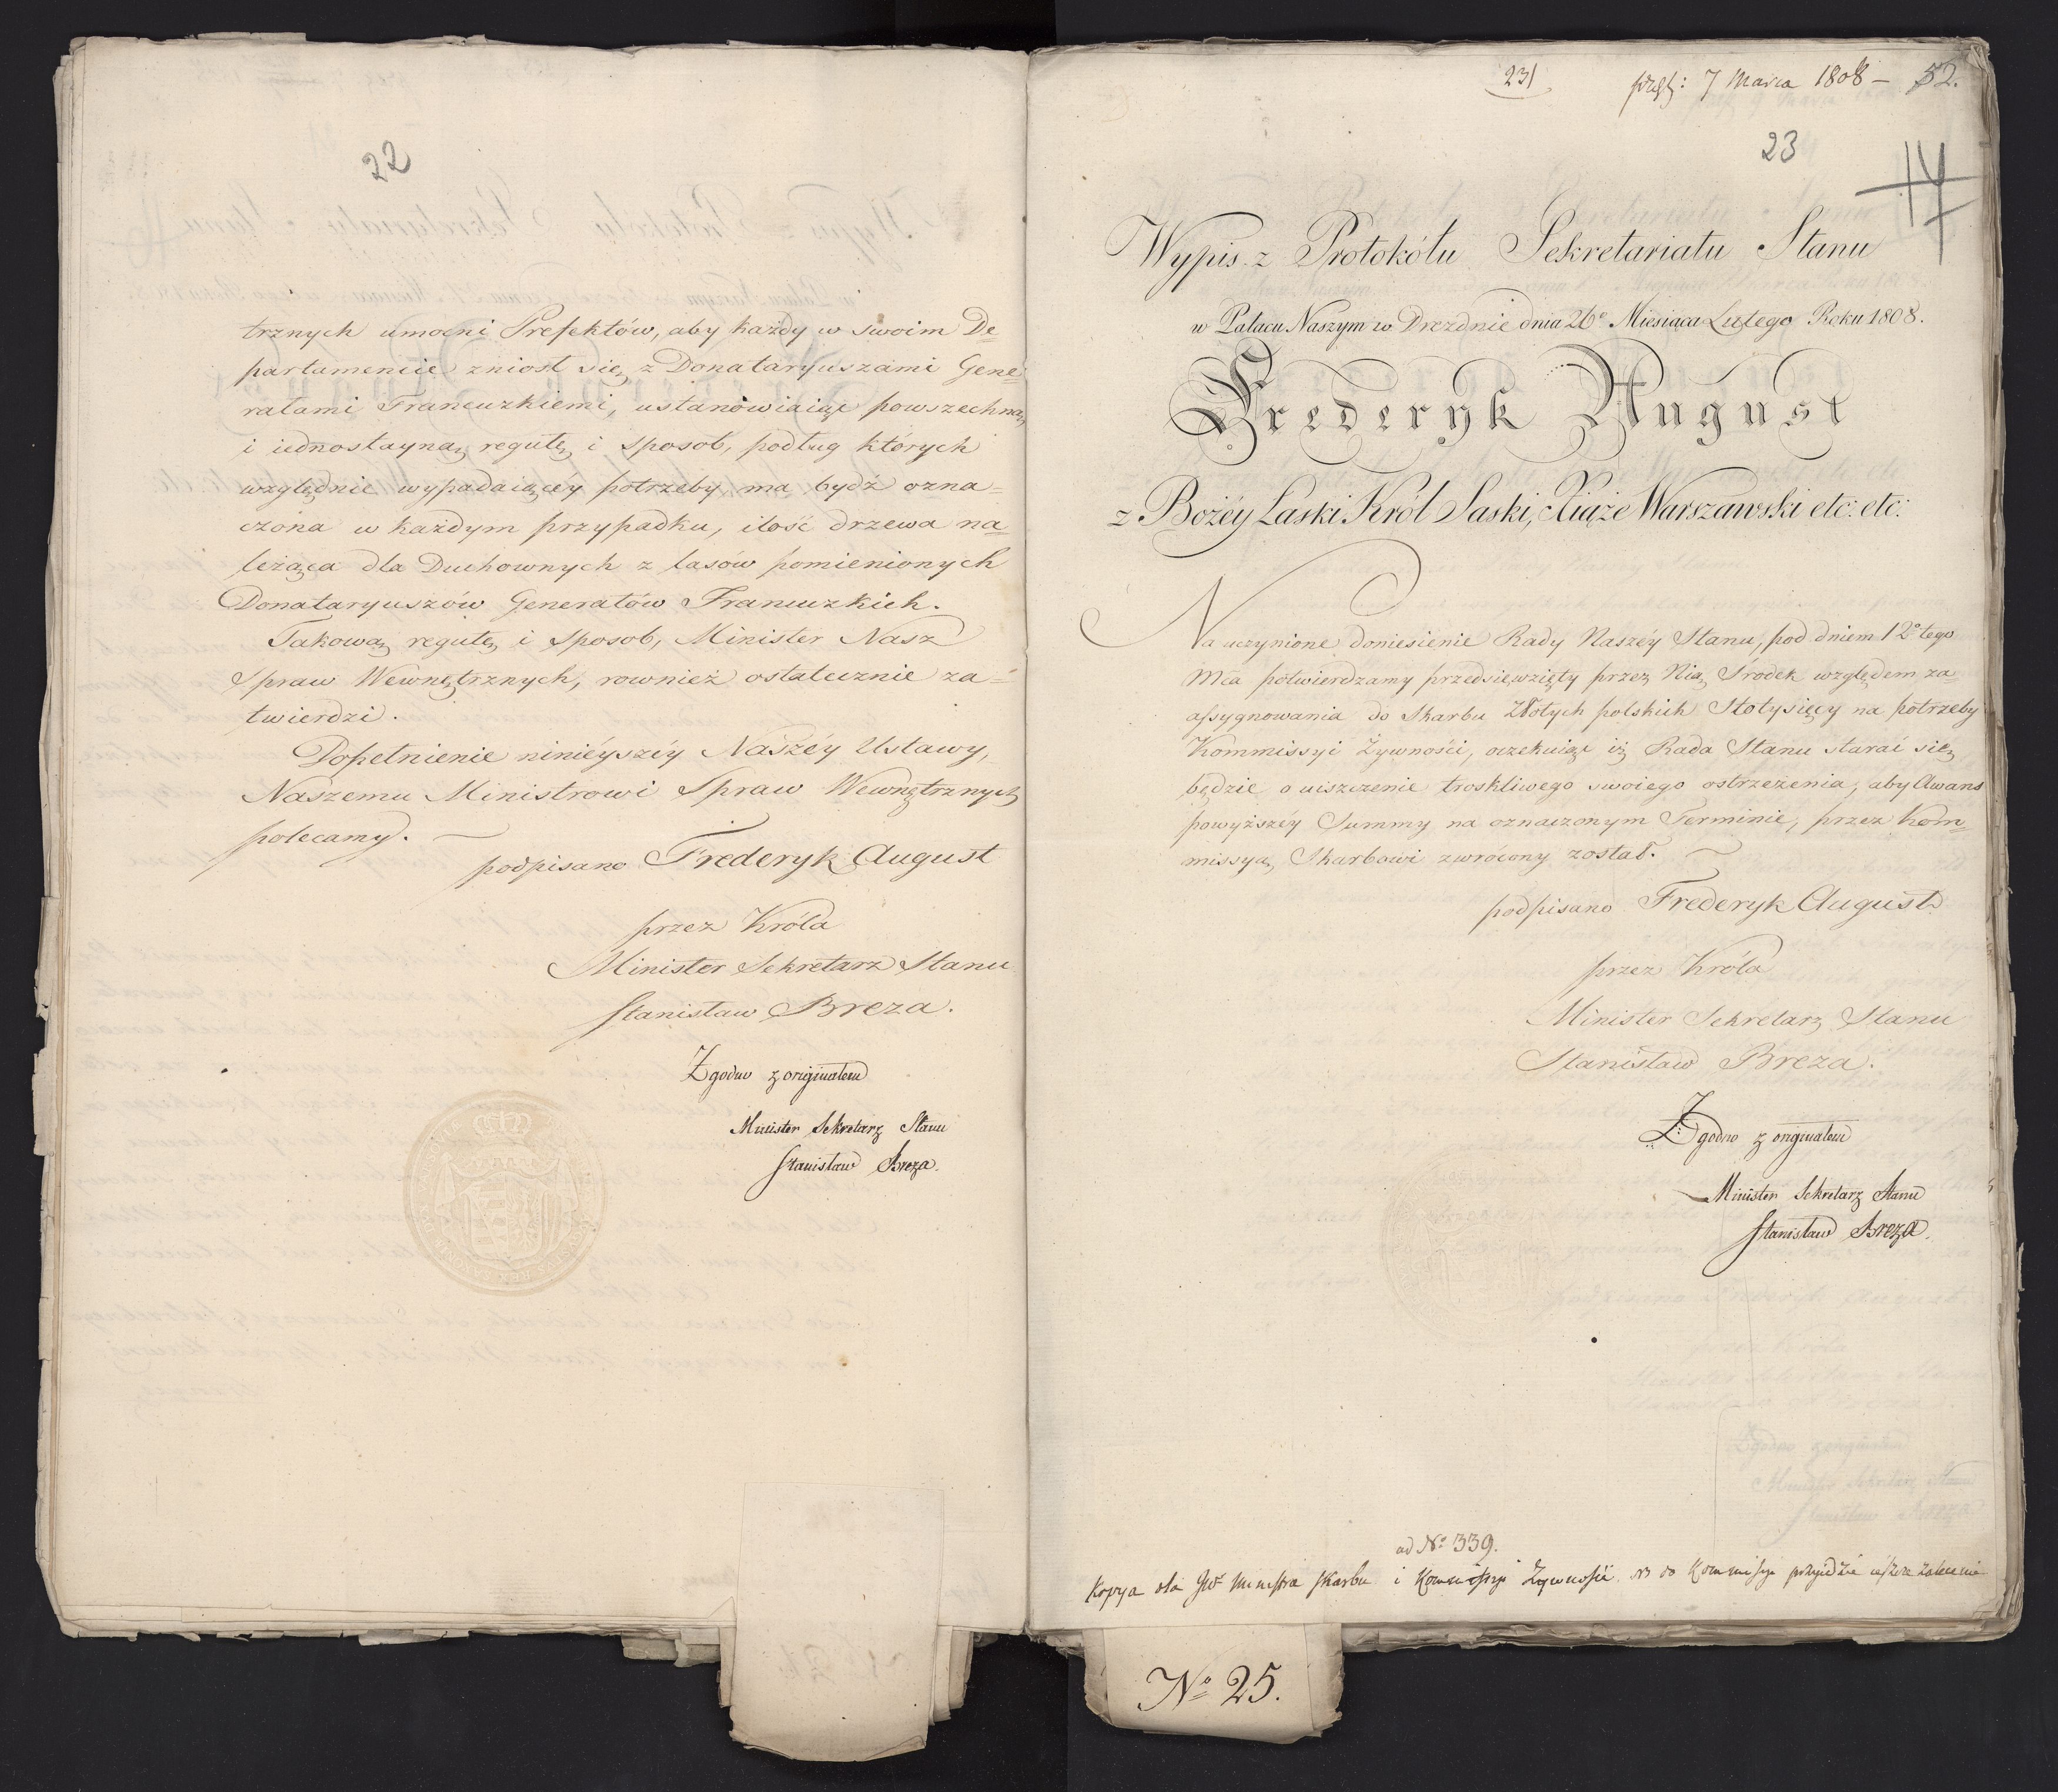 22
trznych umocni Prefektów, aby każdy w swoim De=
partamencie zniosł się z Donataryuszami Gene=
rałami Francuzkiemi, ustanowiaiąc powszechną
i iednostayną regułę i sposob, podług których
względnie wypadaiącéy potrzeby ma bydź ozna=
czona w każdym przypadku, ilość drzewa na=
leżąca dla Duchownych z lasów pomienionych
Donataryuszów Generałów Francuzkich.
Takową regułę i sposob, Minister Nasz
Spraw Wewnętrznych, rownież ostatecznie za=
twierdzi.
Dopełnienie ninieyszéy Naszéy Ustawy,
Naszemu Ministrowi Spraw Wewnętrznych
polecamy.
podpisano Frederyk August
przez Króla
Minister Sekretarz Stanu
Stanisław Breza.
Zgodno z originałem
Minister Sekretarz Stanu
Stanisław Breza.
231
7 Marca 1808 — 52.
23
14
Wypis z Protokółu Sekretariatu Stanu
w Pałacu Naszym w Dreznie dnia 26º Miesiąca Lutego Roku 1808.
Frederyk August
z Bożéy Łaski Król Saski, Xiąże Warszawski etc: etc:
Na uczynione doniesienie Rady Naszéy Stanu, pod dniem 12º tego
Mca potwierdzamy przedsięwzięty przez Nią Srodek względem za=
assygnowania do Skarbu Złotych polskich Stotysięcy na potrzeby
Kommissyi Żywności, oczekuiąc iż Rada Stanu starać się
będzie o uiszczenie troskliwego swoiego ostrzeżenia, aby Awans
powyższéy Summy na oznaczonym Terminie, przez Kom=
missyą Skarbowi zwrócony został.
podpisano Frederyk August
przez Króla
Minister Sekretarz Stanu
Stanisław Breza.
Zgodno z originałem
Minister Sekretarz Stanu
Stanisław Breza.
ad Nº 339.
Kopya dla Ministra Skarbu i Kommissyi Żywności do Kommissyi przyidzie ieszcze zalecenie
Nº 25.